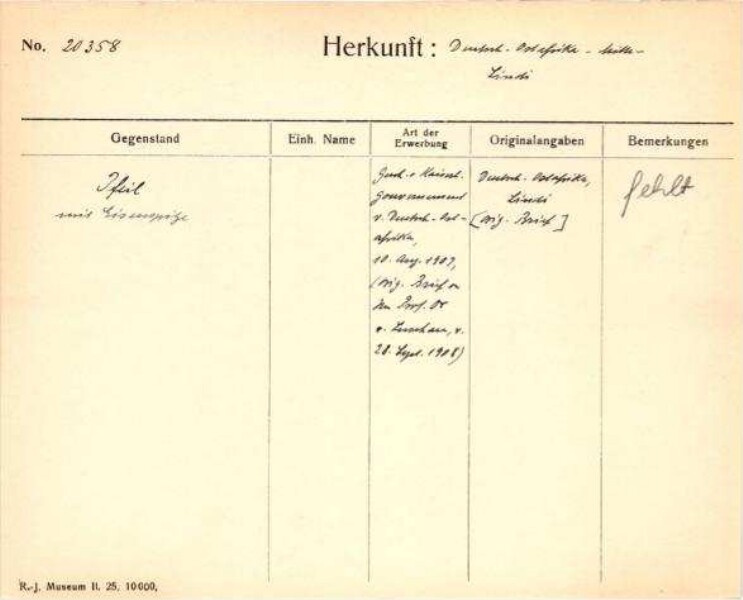 No. 20358
Herkunft: Deutsch-Ostafrika -
Lindi
Gegenstand
Einh. Name
Art der
Erwerbung
Originalangaben
Bemerkungen
Pfeil
mit Eisenspitze
Gesch. v. Kaiserl.
Gouvernement
v. Deutsch-Ost-
afrika,
10. Aug. 1907,
(Orig. Brief an
den Prof. Dr
v. Luschan, v.
28. Sept. 1908)
Deutsch. Ostafrika,
Lindi
[Orig. Brief]
fehlt
R.-J. Museum II. 25. 10000,